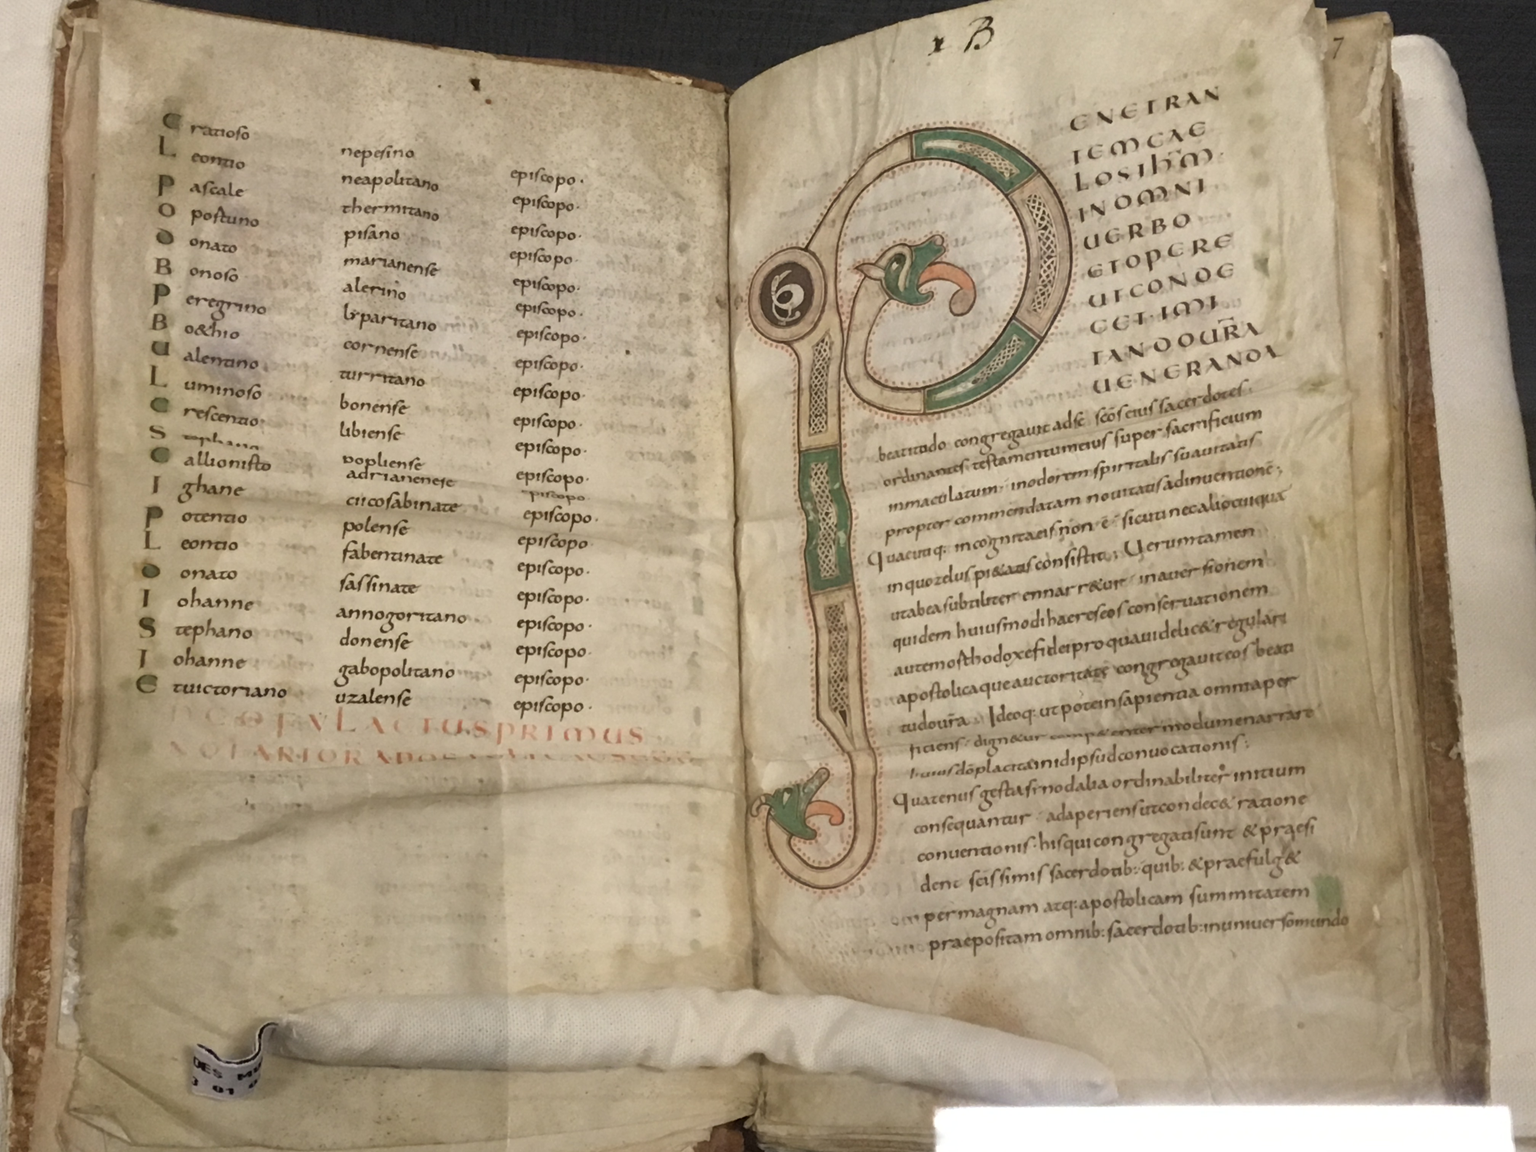 Gratioso nepesino episcopo·
Leontio neapolitano episcopo·
Pascale thermitano episcopo·
Opostuno pisano episcopo·
Donato marianense episcopo·
Bonoso alerino episcopo·
Peregrino lyparitano episcopo·
Bo&hio cornense episcopo·
Ualentino turritano episcopo·
Luminoso bonense episcopo·
Crescentio libiense episcopo·
popliense episcopo·
Callionisto adrianenese
Ighane citcosabinate episcopo·
Potentio polense episcopo·
Leontio fabentinate episcopo·
Donato sassinate episcopo·
Iohanne annogoritano episcopo·
Stephano donense episcopo·
Iohanne gabopolitano episcopo·
Etuictoriano uzalense episcopo·
LACTUSPRIMUS
B
7
PENETRAN
TEMCAE
LOSIHM·
INOMNI
UERBO
ETOPERE
UTCONDE
CET·IMI
TANDOURA
UENERANDA
beatitudo· congregauit adse· scos eius sacerdotes·
ordinantes· testamentumeius super sacrificium
inmaculatum· inodorem spiritalis suauitatis
propter commendatam nouitatis adinuentione·
Quacumq· incognitaeis non e· sicuti necalioctiiqua
inquozelus pi&atis consistit· Uerumtamen
utabea subtiliter ennarr&ur· inauersionem
quidem huiusmodi haereseos conseruationem
autemosthodoxefidei pro quauidelic& regulari
apostolicaque auctoritate congregauit eos beati
tudoura· Ideoq· ut poteinsapientia omniaper
ficiens· dign&ur modumenarrare
huius doplacitainidipsud conuocationis·
Quatenus gestasinodalia ordinabiliter initium
consequantur· adaperiensutcondec& ratione
conuentionis· hisqui congregatisunt & praesi
dent scissimis sacerdotib: quib: & praefulg&
per magnam atq: apostolicam summitatem
praepositam omnib: sacerdotib: inuniuersomundo